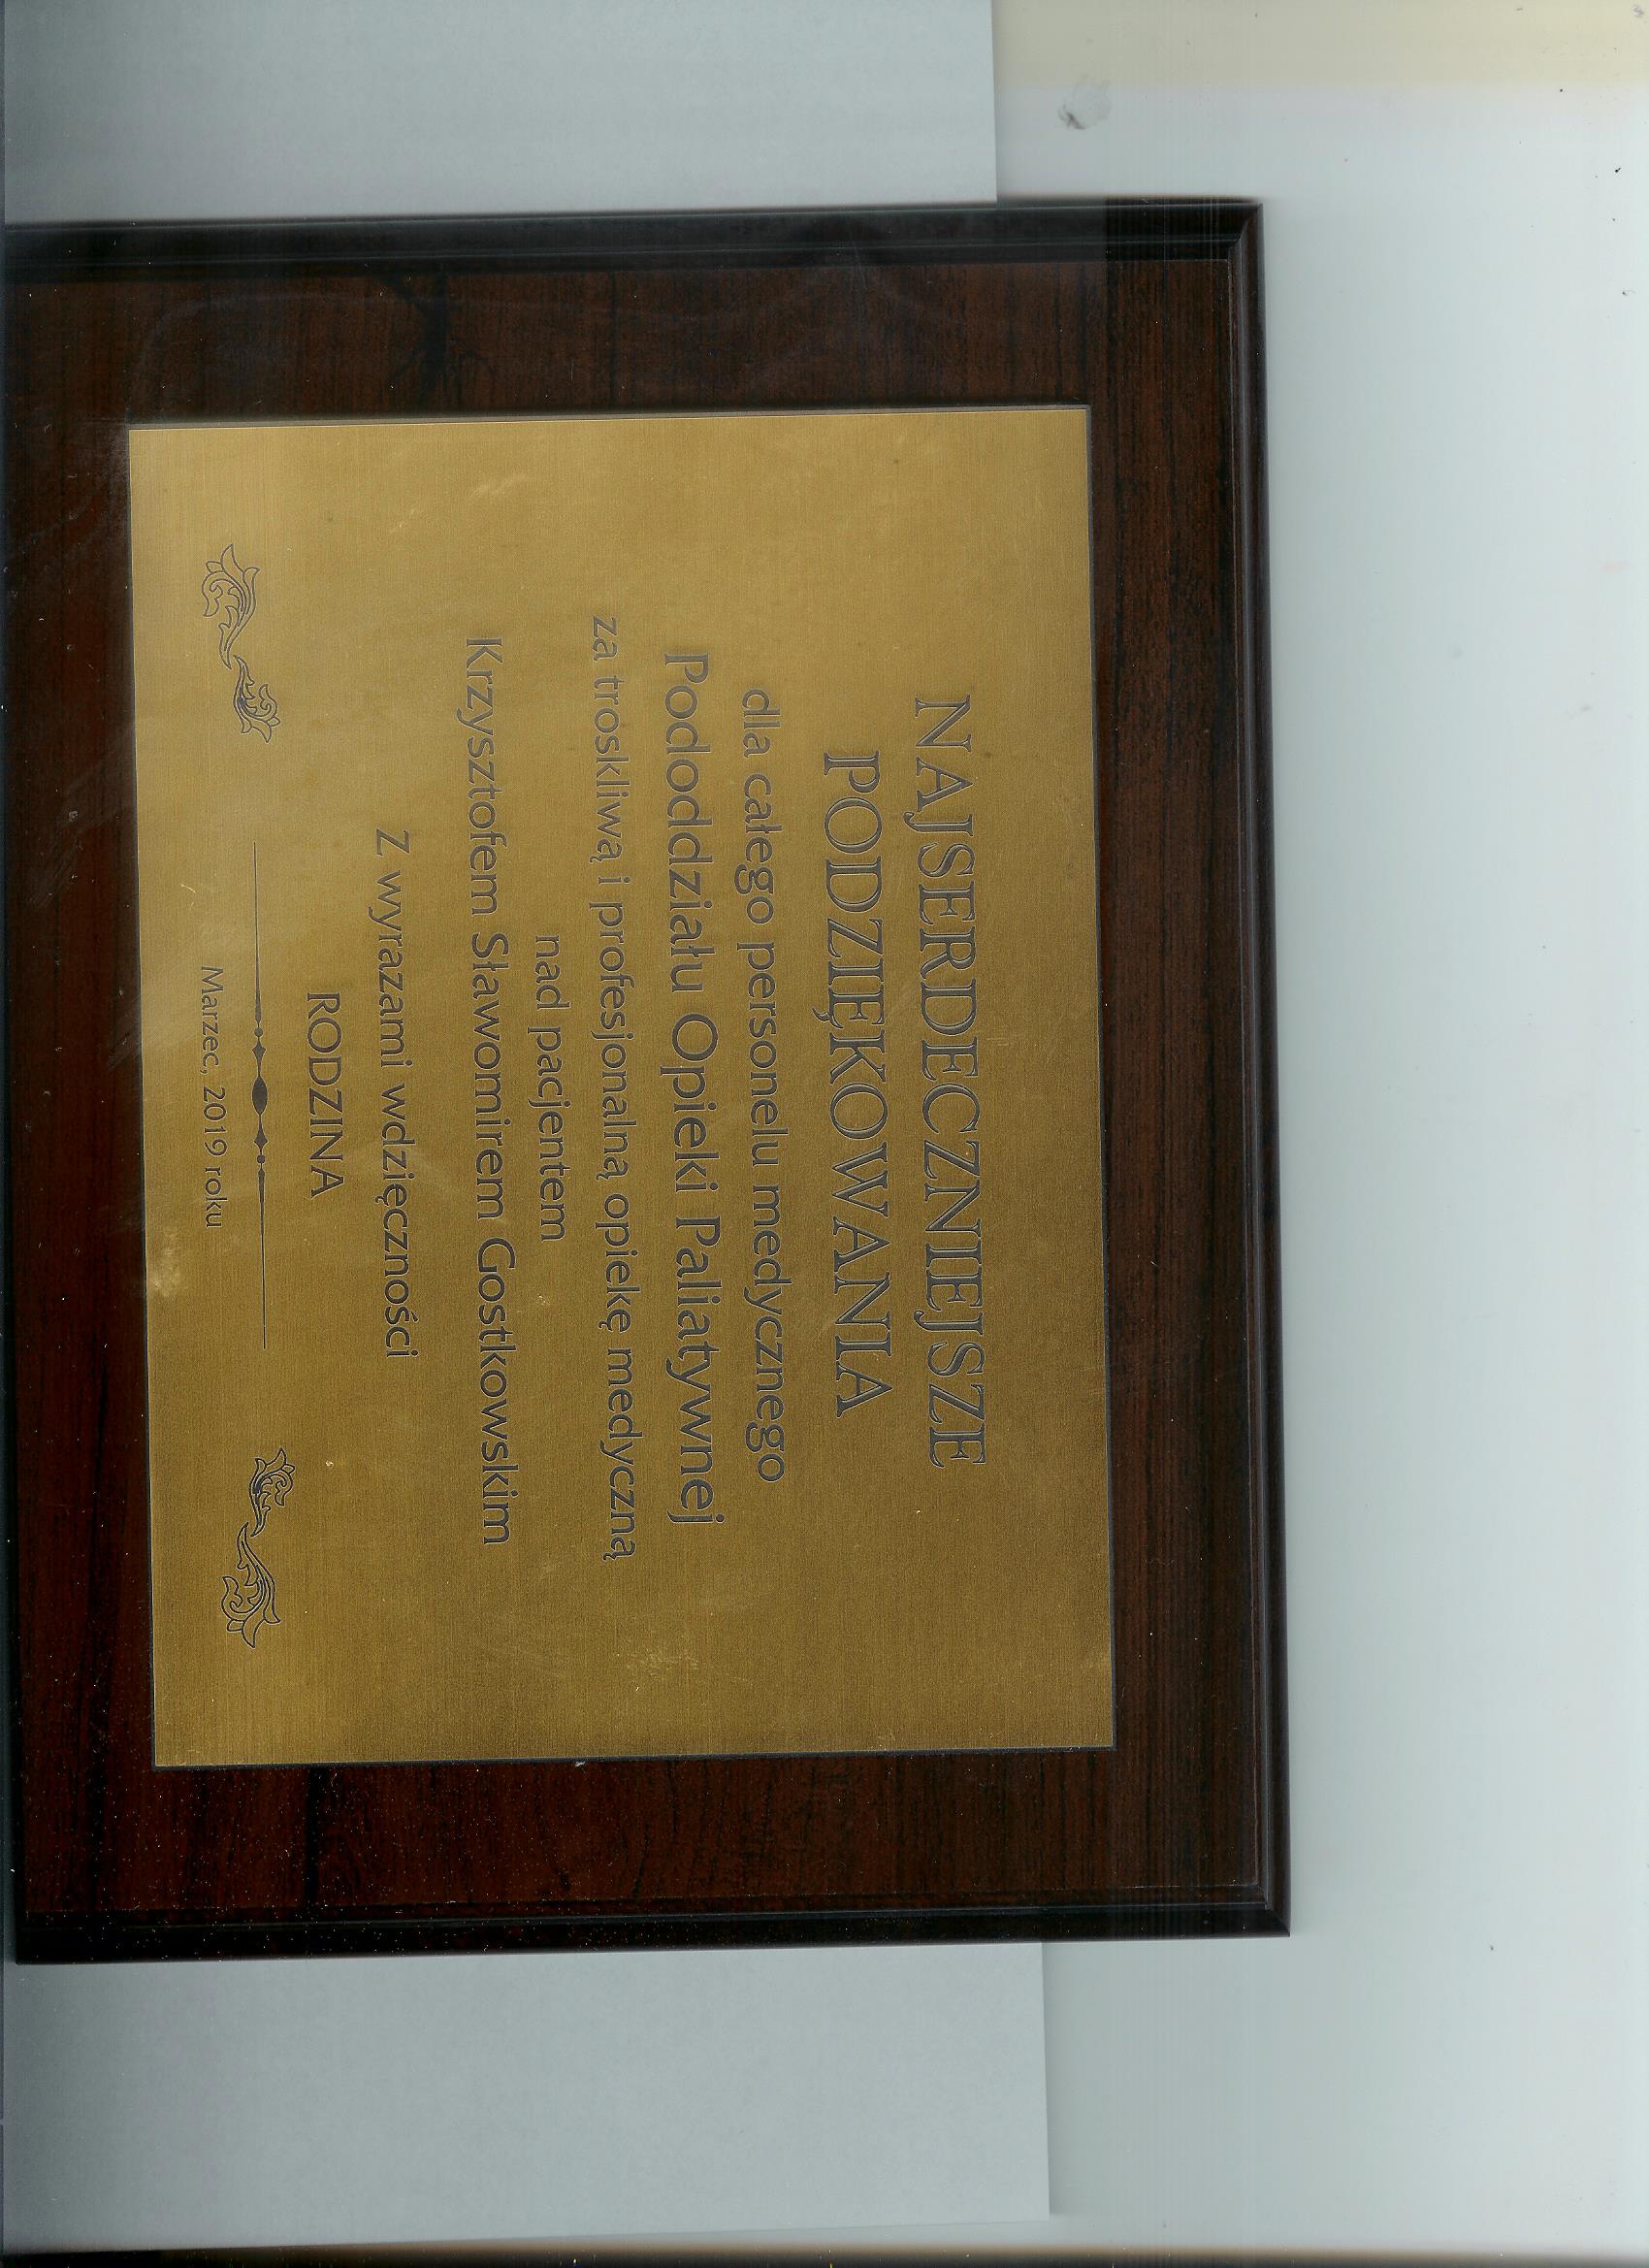 NAJSERDECZNIEJSZE
PODZIĘKOWANIA
dla całego personelu medycznego
Pododdziału Opieki Paliatywnej
za troskliwą i profesjonalną opiekę medyczną
nad pacjentem
Krzysztofem Sławomirem Gostkowskim
Z wyrazami wdzięczności
RODZINA
Marzec, 2019 roku